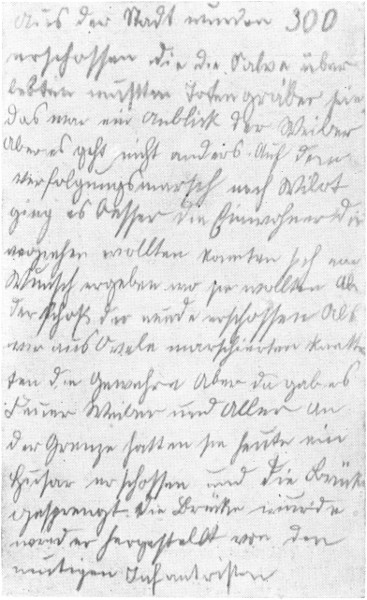 aus der Stadt wurden 300
erschossen die die Salve über
lebten mußten Totengräber sein
das war ein Anblick der Weiber
Aber es geht nicht anders. Auf dem
verfolgungsmarsch nach Wilot
ging es besser die Einwohner die
verziehen wollten konnten sich nach
Wunsch ergeben wo sie wollten Aber
der schoß der wurde erschossen Als
wir aus Owele marschierten knatter
ten die Gewehre Aber da gab es
Feuer Weiber und Alles An
der Grenze hatten sie heute ein
Husar erschossen und die Brücke
gesprengt. Die Brücke wurde
wieder hergestellt von den
mutigen Infantristen